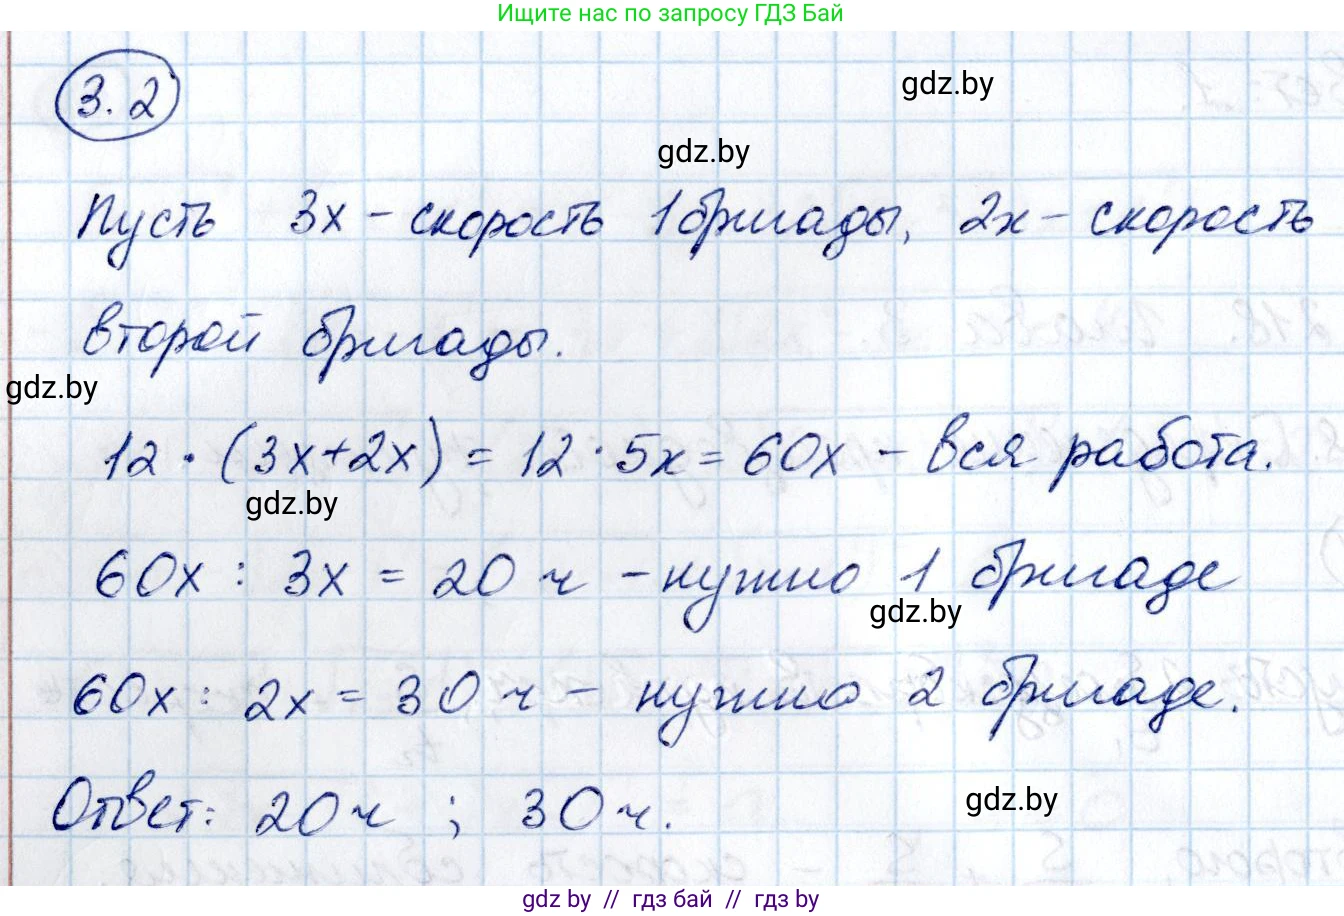 Ищите нас по запросу ГДЗ Бай
3.2
gdz.by
gdz.by
Пусть 3x - скорость 1 бригады, 2x - скорость
второй бригады.
gdz.by
12 · (3x+2x) = 12 · 5x = 60x - вся работа.
gdz.by
60x : 3x = 20 ч - нужно 1 бригаде
gdz.by
60x : 2x = 30 ч - нужно 2 бригаде.
gdz.by
Ответ: 20 ч ; 30 ч.
gdz by // гдз бай // гдз by